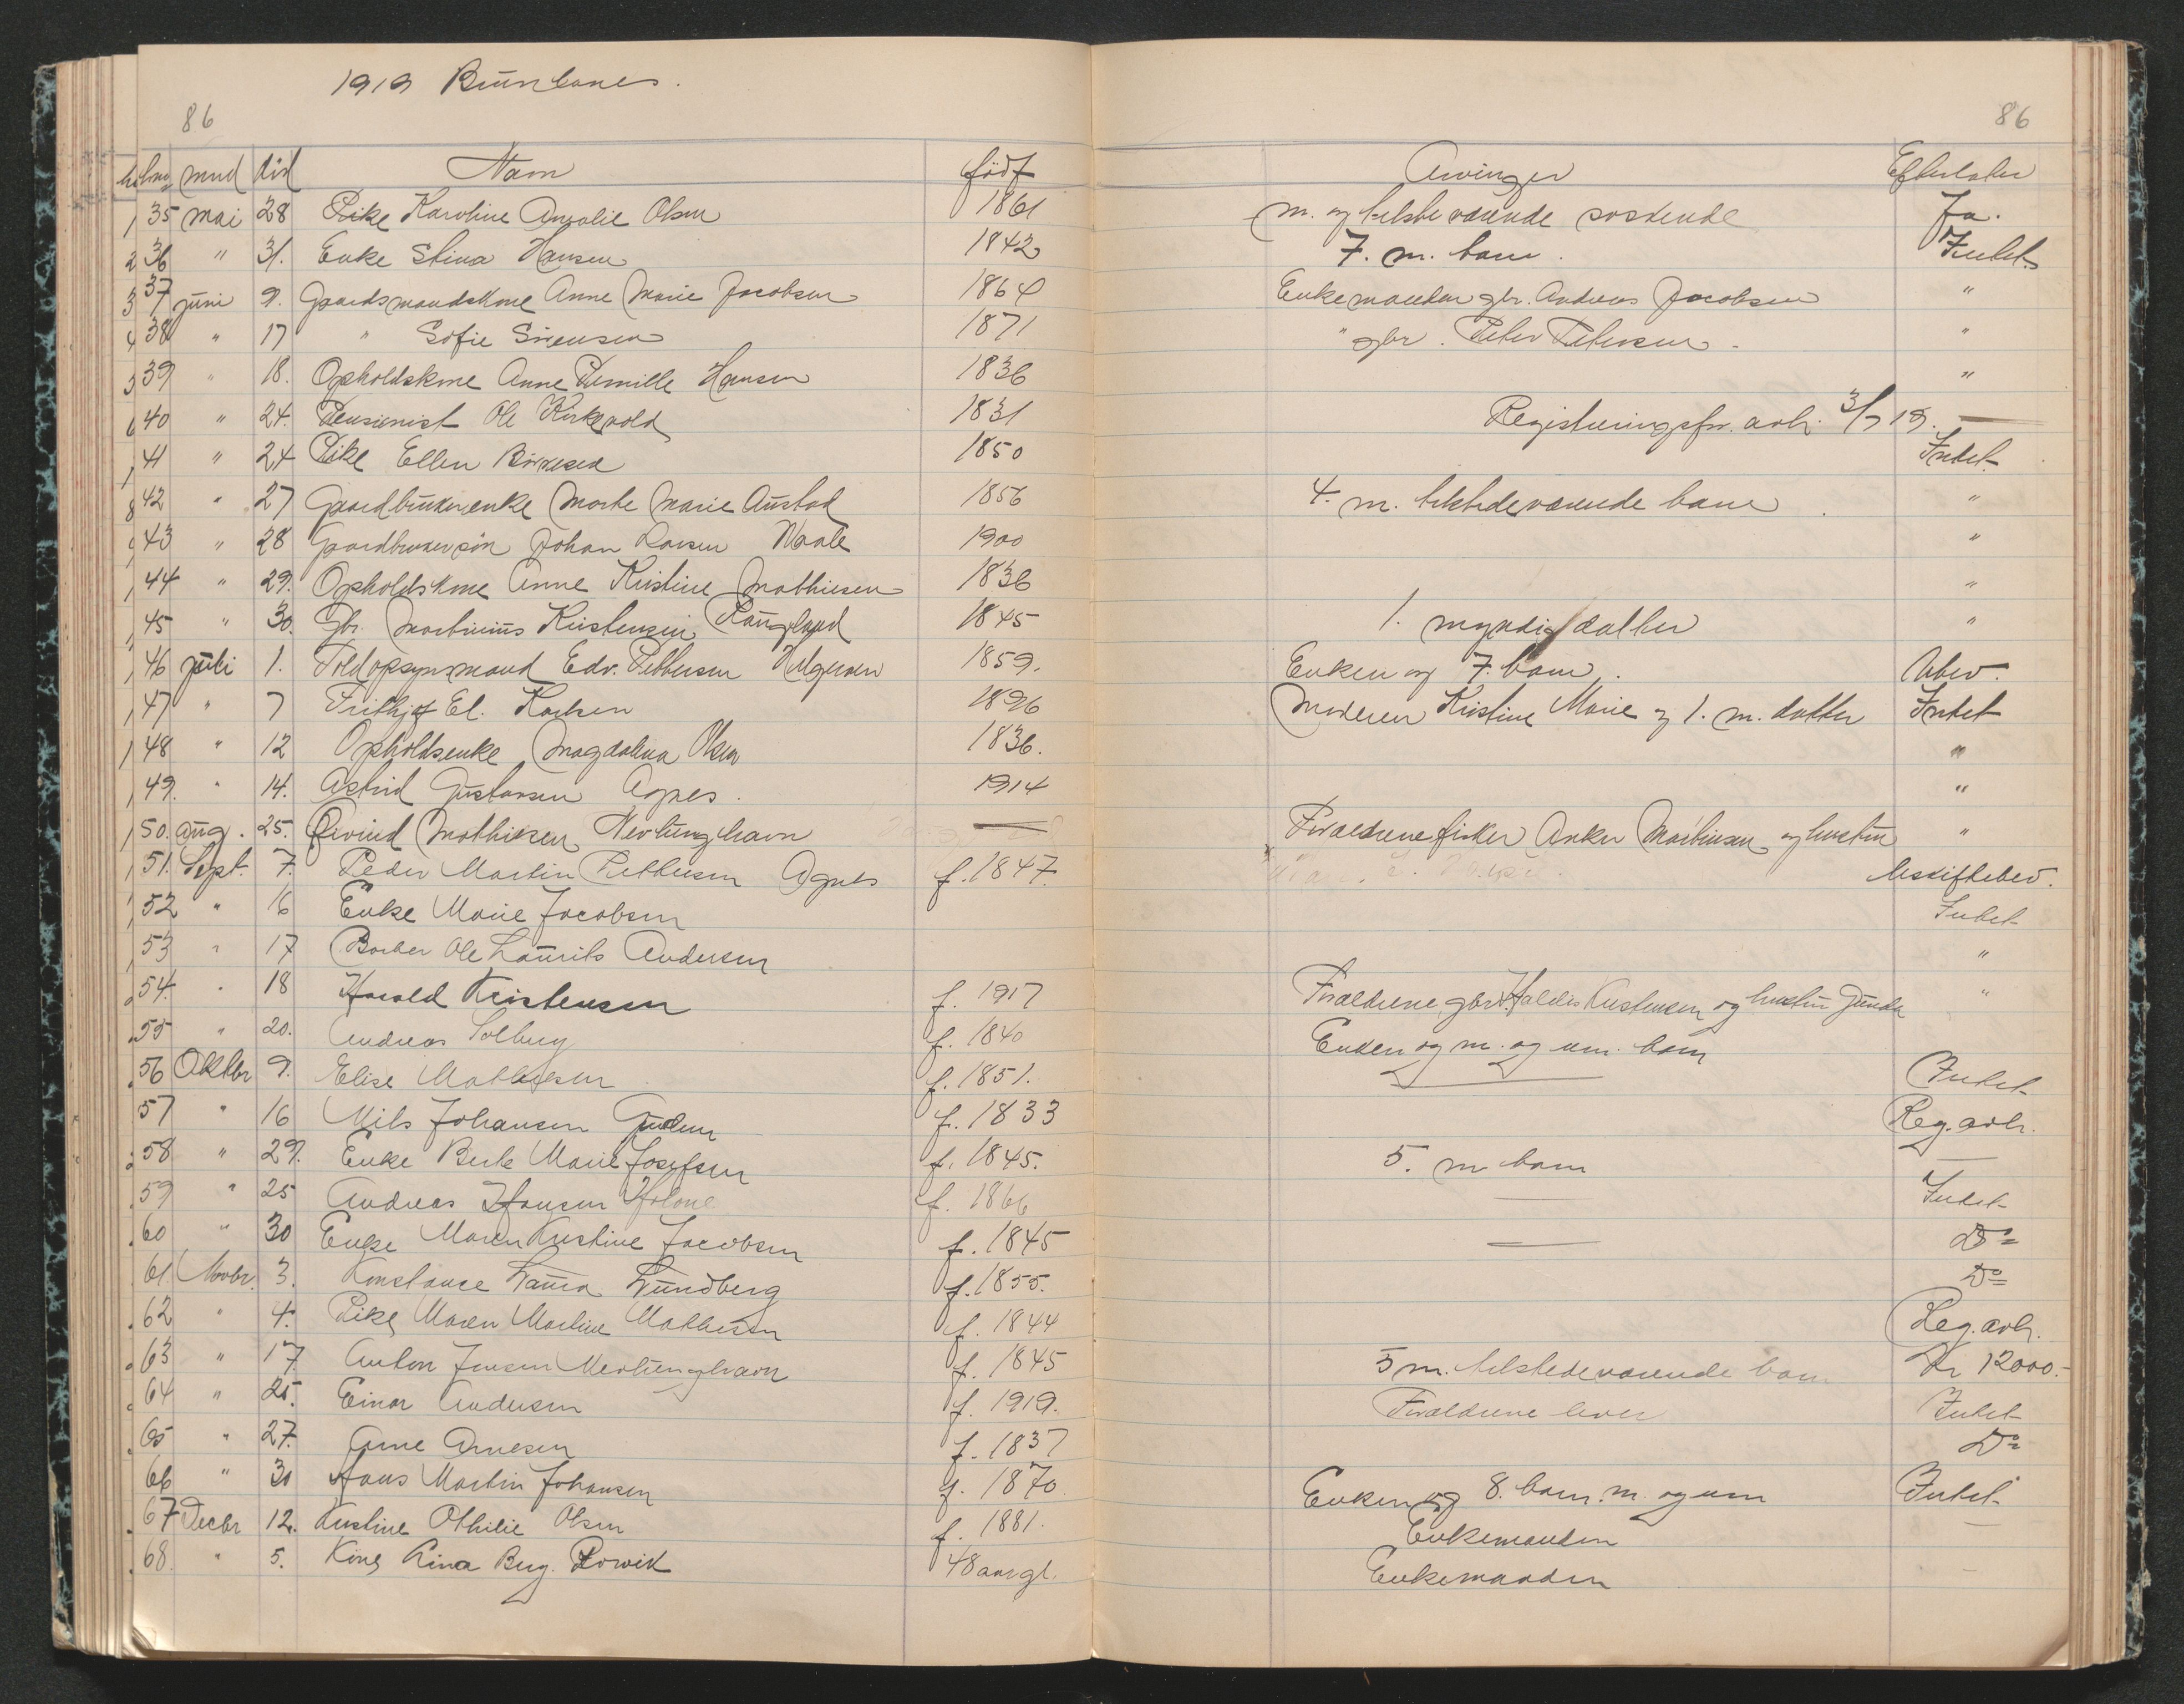 1919 Brunlanes.
86
86
mnd dag Navn født Arvinger Efterlater
35 mai 28 Pike Karoline Amalie Olsen 1861 m. og tilstedeværende søskende Ja.
36 " 31. Enke Stina Hansen 1842 7. m. barn. Intet.
37 juni 9. Gaardsmandskone Anne Marie Jacobsen 1864 Enkemanden gbr. Andreas Jacobsen "
38 " 17 " Sofie Sørensen 1871 " gbr. Peder Pettersen. "
39 " 18. Opholdskone Anne Pernille Hansen 1836 "
40 " 24. Pensionist Ole Kirkevold 1831 Registreringsfor. avh. 3/7 19. —
41 " 24 Pike Ellen Børresen 1850 Intet.
42 " 27 Gaardbrukerenke Marte Marie Austad 1856 4. m. tilstedeværende barn. "
43 " 28 Gaardbrukersøn Johan Larsen 1900 "
44 " 29. Opholdskone Anne Kristine Mathiesen 1836 "
45 " 30. Gbr. Martinius Kristensen Laugland 1845 1. myndig datter "
46 juli 1. Toldopsynsmand Edv. Pettersen Helgeroen 1859. Enken og 7. barn. Ubev.
47 " 7 Frithjof El. Karlsen 1896 Moderen Kristine Marie og 1. m. datter Intet
48 " 12 Opholdsenke Magdalena Olsen 1836. "
49. " 14. Astrid Gustavsen Agnes. 1914 "
50. aug. 25. Øivind Mathisen Nevlunghavn — Forældrene fisker Anker Mathisen og hustru "
51. Sept. 7. Peder Martin Pettersen Agnes f. 1847. Uskiftebev.
52 " 16 Enke Marie Jacobsen Intet
53 " 17 Barber Ole Laurits Andersen "
54. " 18 Harald Kristensen f. 1917 Forældrene gbr. Haldis Kristensen og hustru Gunda "
55 " 20. Andreas Solberg f. 1840 Enken og m. og um. barn
56 Oktbr 9. Elise Mathisen f. 1851. — Intet
57 " 16 Nils Johansen f. 1833 Reg. avh.
58 " 29. Enke Berte Marie Josefsen f. 1845. 5. m barn —
59 " 25 Andreas Hansen f. 1866 — Intet
60 " 30 Enke Maren Kristine Jacobsen f. 1845 — Do
61. Novbr. 3. Konstance Laura Lundberg f. 1855. Do
62 " 4. Pike Maren Martine Mathisen f. 1844 Reg. avh.
63 " 17 Anton Jensen Nevlunghavn f. 1845 5 m. tilstedeværende barn Kr 12000.-
64 " 25. Einar Andersen f. 1919. Forældrene lever Intet
65 " 27. Arne Arnesen f. 1837 Do
66 " 30 Hans Martin Johansen f. 1870. Enken og 8. barn. m. og um Intet.
67 Decbr 12. Kristine Othilie Olsen f. 1881. Enkemanden —
68. " 5. Kone Lina Berg. 48 aar gl. Enkemanden —